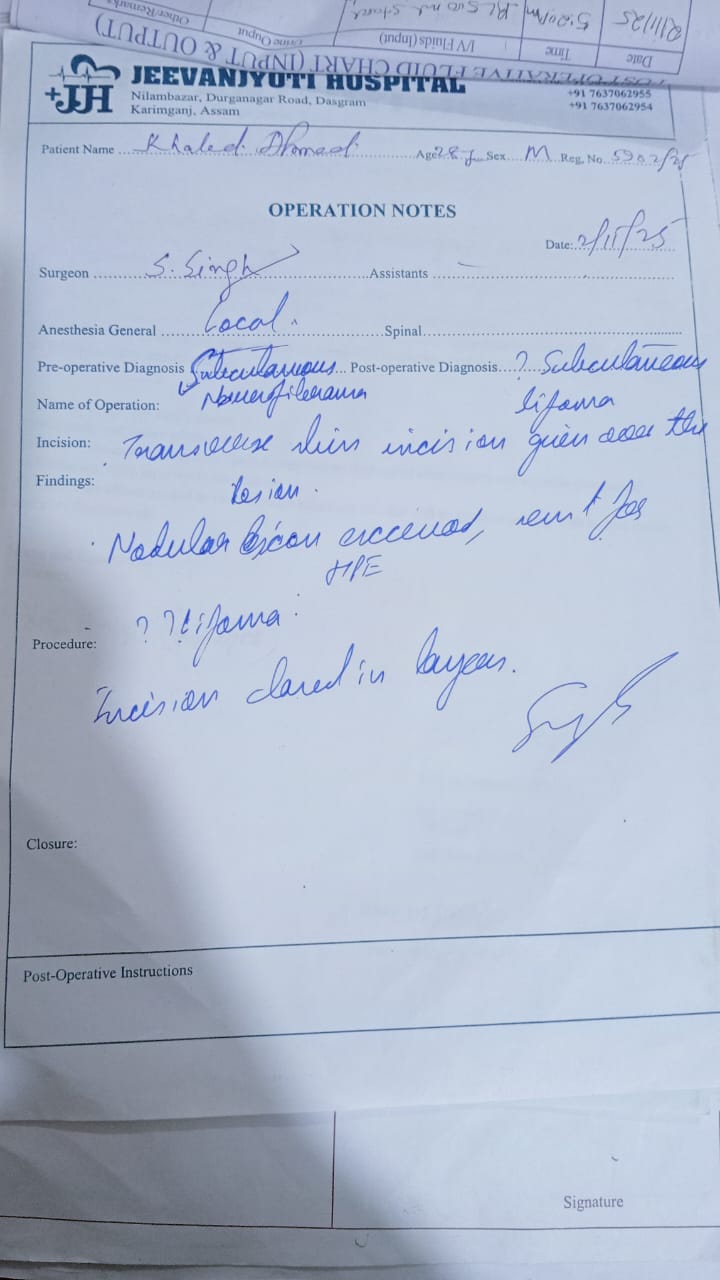 2/11/25 5:20pm RL
Date Time I/V Fluids (Input) Urine Ouput Other/Remarks
POST OPERATIVE FLUID CHART (INPUT & OUTPUT)
JEEVANJYOTI HOSPITAL
+JH
Nilambazar, Durganagar Road, Dasgram
Karimganj, Assam
+91 7637062955
+91 7637062954
Patient Name Khaled Ahmed Age 28 y Sex M Reg. No. 5902/25
OPERATION NOTES
Date: 2/11/25
Surgeon S. Singh Assistants –
Anesthesia General Local. Spinal
Pre-operative Diagnosis Subcutaneous Post-operative Diagnosis ? Subcutaneous
Name of Operation: Neurofibroma lipoma
Incision: Transverse skin incision given over the
Findings: lesion.
Nodular lesion excised, sent for
HPE
? ? Lipoma.
Procedure:
Incision closed in layers.
Closure:
Post-Operative Instructions
Signature